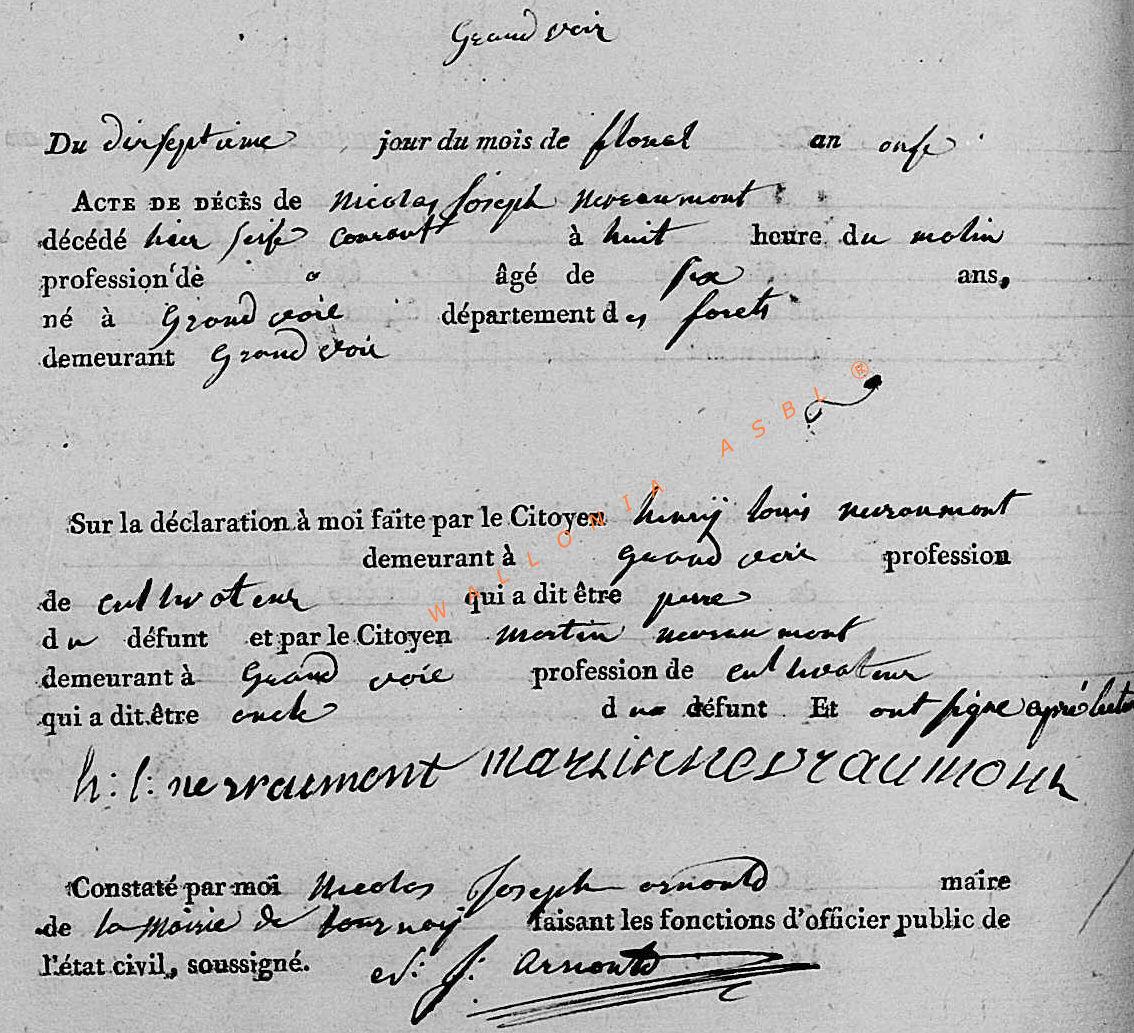 Grand voir
Du dixseptieme jour du mois de floreal an onse
ACTE DE DÉCÈS de nicolas Joseph nevraumont
décédé hier seise courant à huit heure du matin
profession de âgé de six ans,
né à Grand voir département des forets
demeurant Grand voir
Sur la déclaration à moi faite par le Citoyen henrij louis nevraumont
demeurant à Grand voir profession
de cultivateur qui a dit être pere
du défunt et par le Citoyen martin nevraumont
demeurant à Grand voir profession de cultivateur
qui a dit être oncle du défunt Et ont signe après lecture
h: l: nevraumont martin nevraumont
Constaté par moi Nicolas Joseph arnould maire
de la Mairie de tournay faisant les fonctions d'officier public de
l'état civil, soussigné. N: J: Arnould
WALLONIA ASBL ®